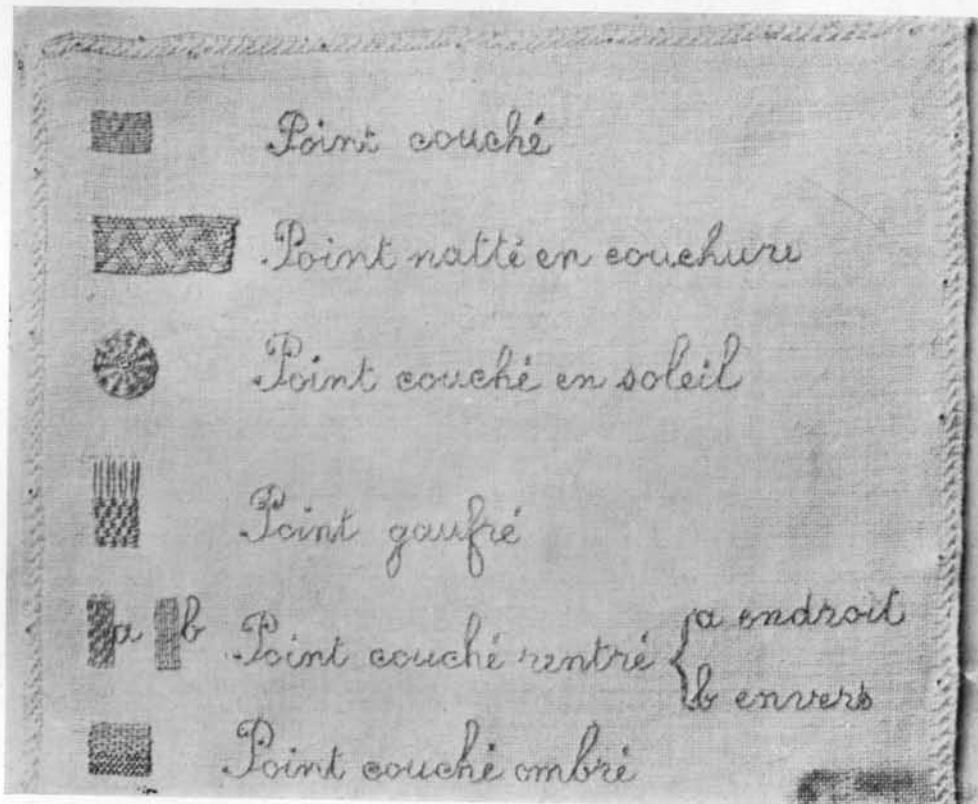 Point couché
Point natté en couchure
Point couché en soleil
Point gaufré
a b Point couché rentré { a endroit
b envers
Point couché ombré